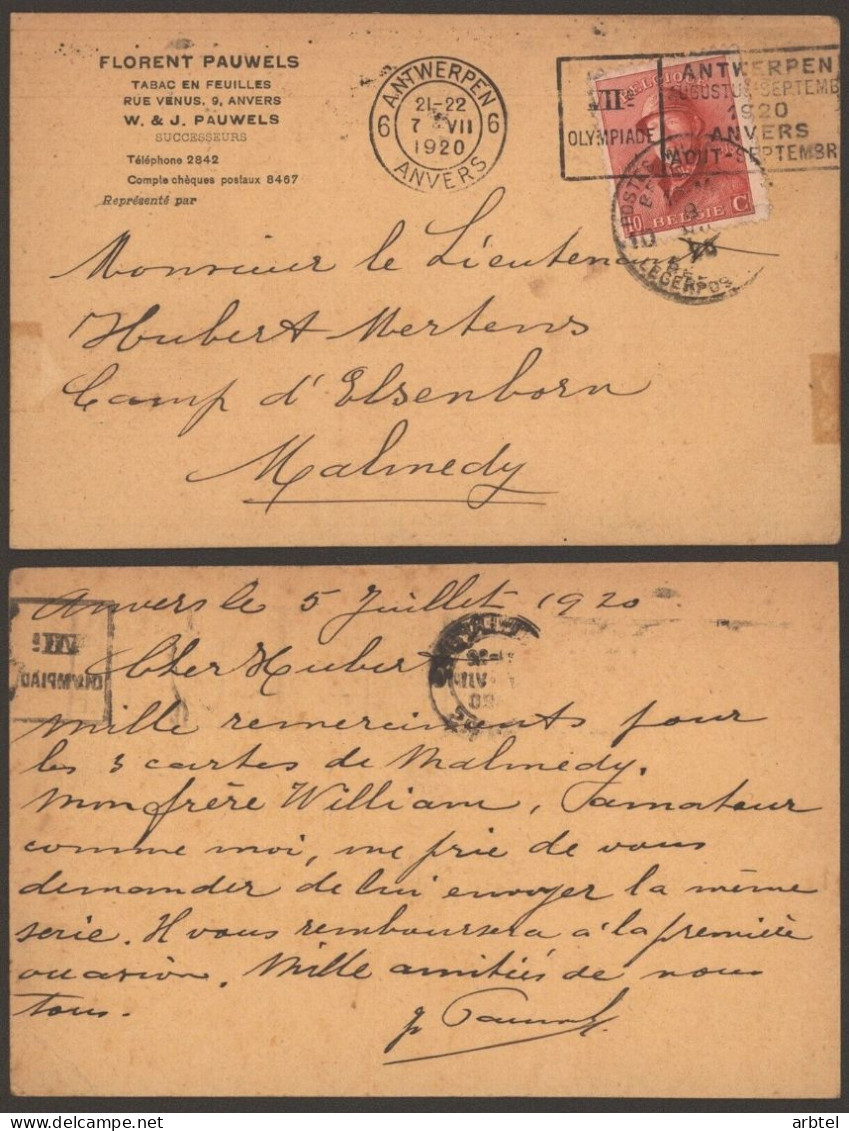 FLORENT PAUWELS
TABAC EN FEUILLES
RUE VENUS, 9, ANVERS
W. & J. PAUWELS
SUCCESSEURS
Téléphone 2842
Compte chèques postaux 8467
Représenté par
ANTWERPEN
6 21-22 6
7 VII
1920
ANVERS
VIIe
OLYMPIADE
ANTWERPEN
AUGUSTUS-SEPTEMB
1920
ANVERS
AOUT-SEPTEMBR
BELGIQUE
10 BELGIE C
POSTES
LEGERPOS
Monsieur le Lieutenant
Hubert Mertens
Camp d'Elsenborn
Malmedy
Anvers le 5 Juillet 1920
VIIe
OLYMPIAD
Cher Hubert
Mille remerciments pour
les 3 cartes de Malmedy.
Mon frère William, l'amateur
comme moi, me prie de vous
demander de lui envoyer la même
serie. Il vous remboursera à la première
occasion. Mille amitiés de nous
tous.
J Pauwels
arbtel